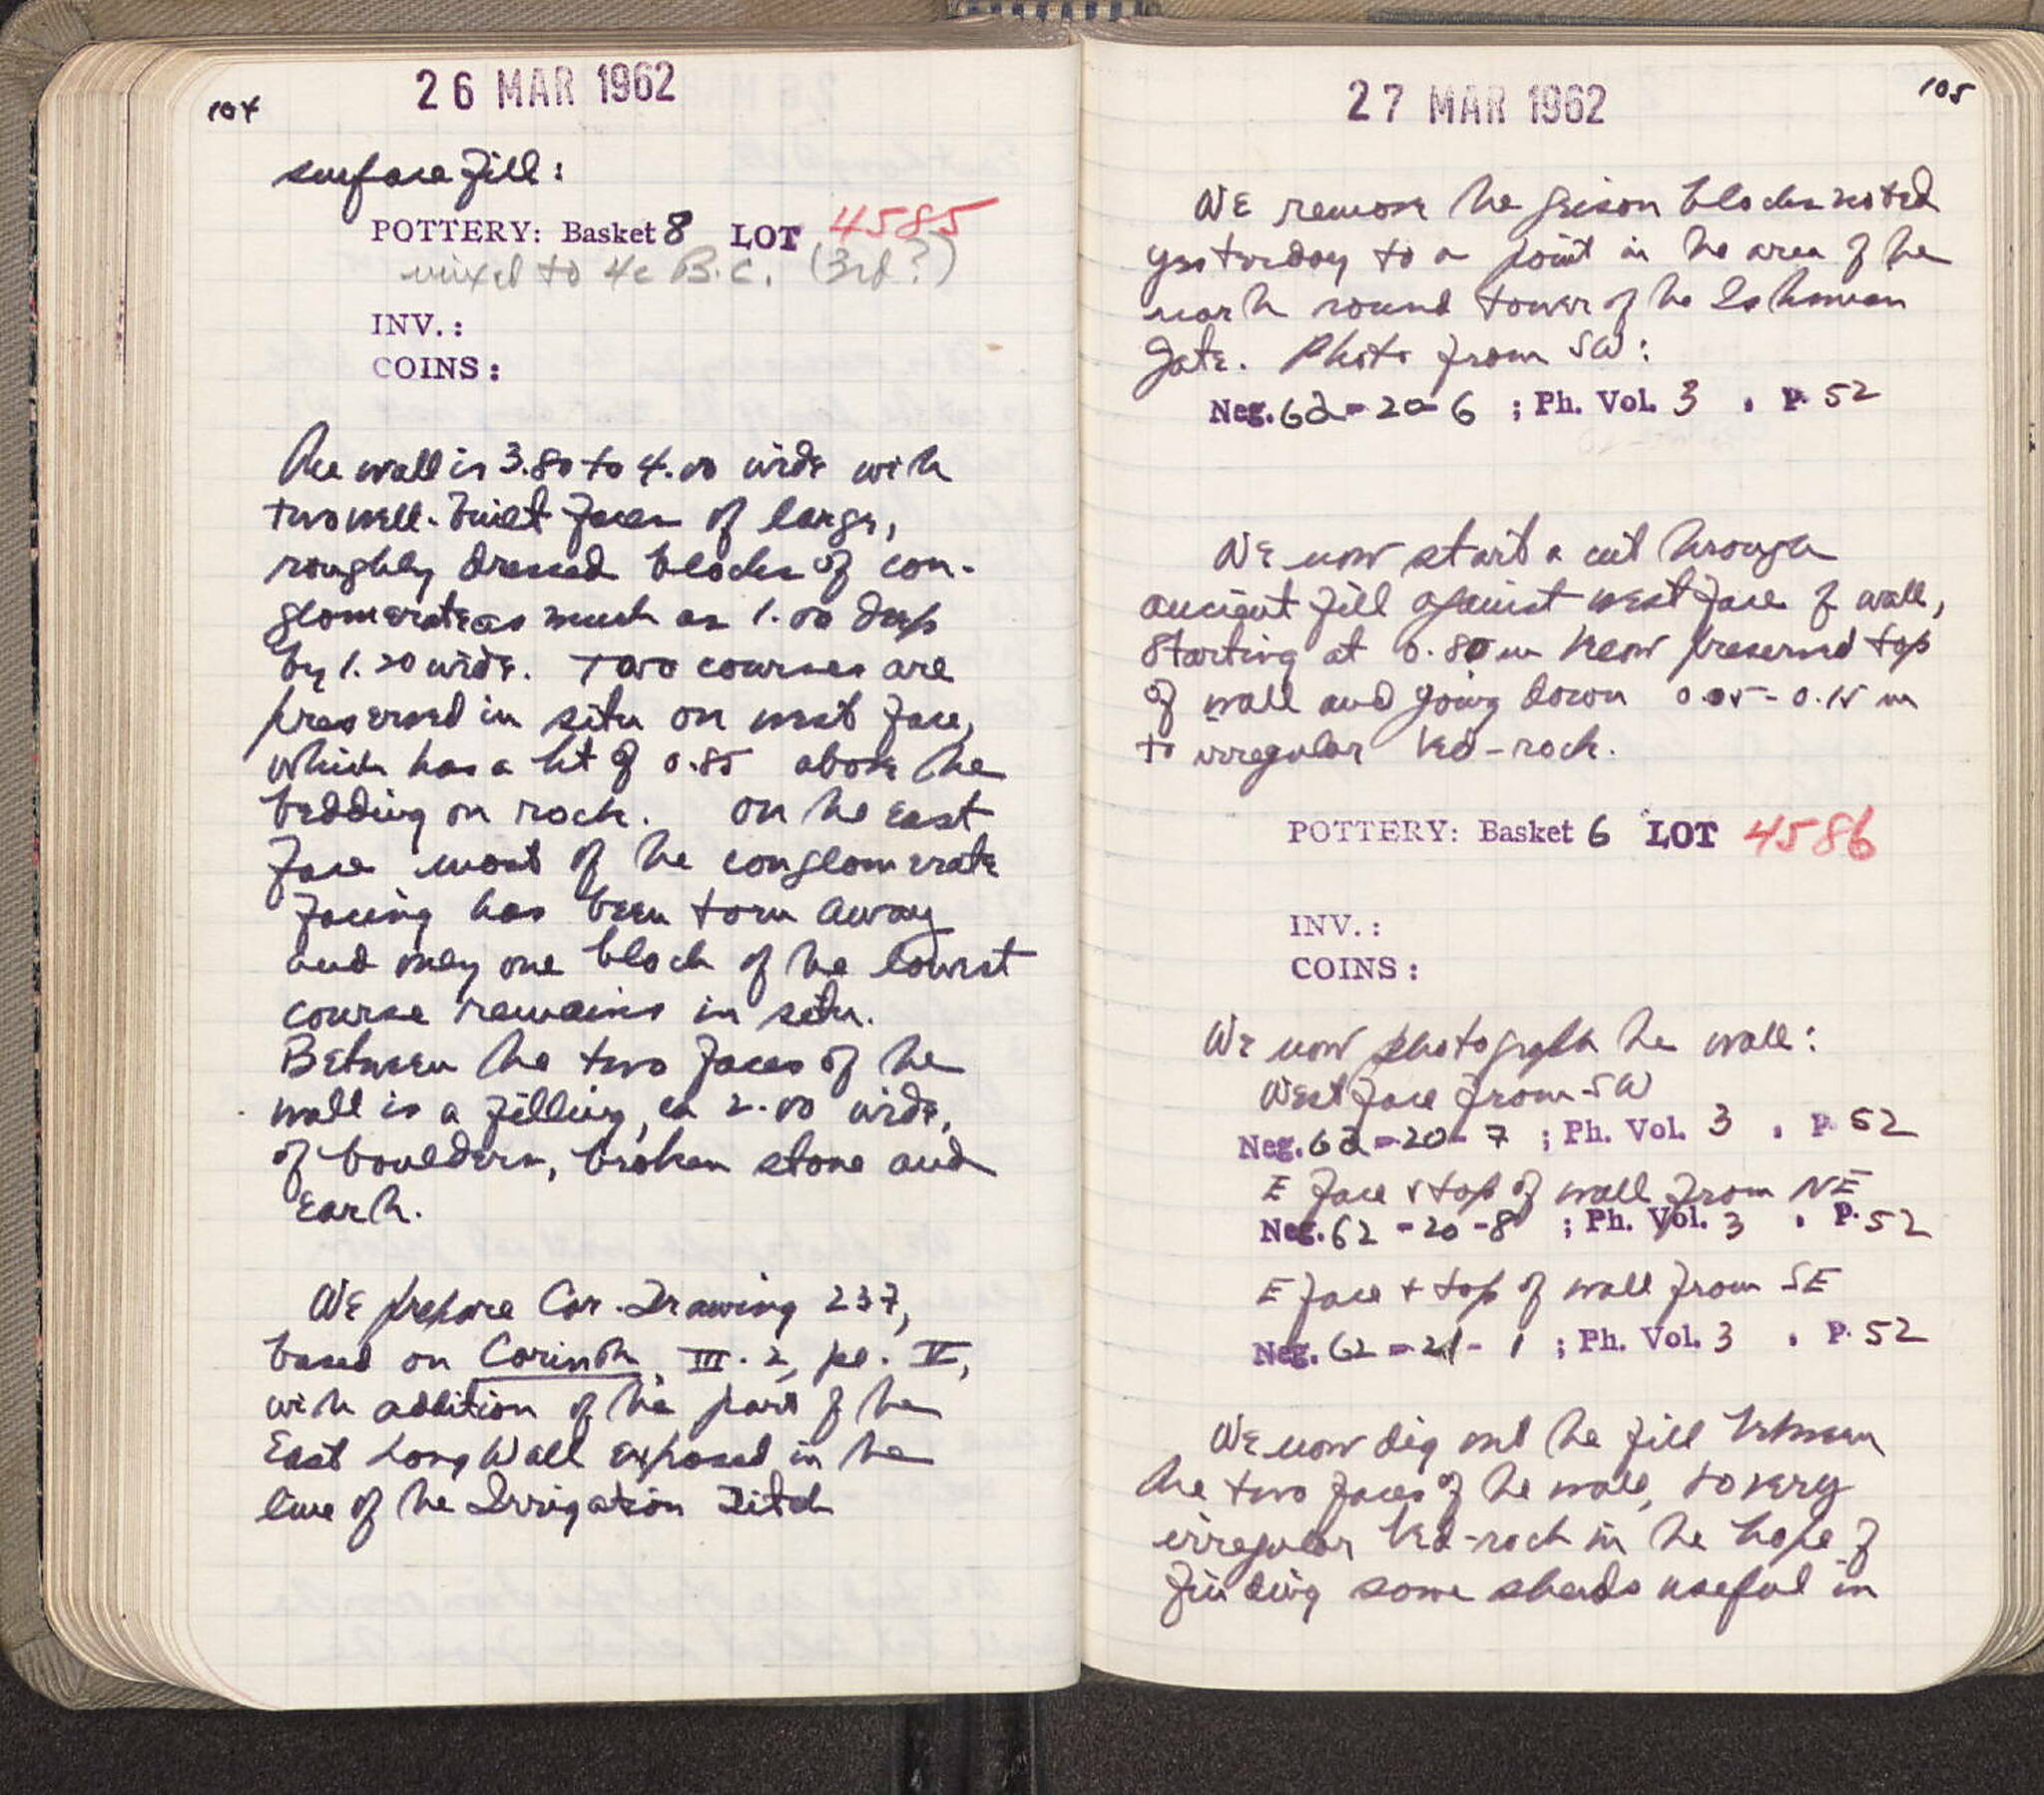 104
26 MAR 1962
surface fill:
POTTERY: Basket 8 LOT 4585
mixed to 4c B.C. (3rd?)
INV.:
COINS:
The wall is 3.80 to 4.00 wide with
two well-built faces of large,
roughly dressed blocks of con-
glomerate as much as 1.00 deep
by 1.20 wide. Two courses are
preserved in situ on west face,
which has a ht of 0.85 above the
bedding on rock. On the east
face most of the conglomerate
facing has been torn away
and only one block of the lowest
course remains in situ.
Between the two faces of the
wall is a filling, ca 2.00 wide,
of boulders, broken stone and
earth.
We prepare Cor. Drawing 237,
based on Corinth, III.2, pl. V,
with addition of the part of the
East Long Wall exposed in the
line of the Irrigation Ditch
105
27 MAR 1962
We remove the geison blocks noted
yesterday to a point in the area of the
north round tower of the Isthmian
Gate. Photo from SW:
Neg. 62-20-6 ; Ph. Vol. 3 , P. 52
We now start a cut through
ancient fill against west face of wall,
starting at 0.80 m below preserved top
of wall and going down 0.05-0.15 m
to irregular bed-rock.
POTTERY: Basket 6 LOT 4586
INV.:
COINS:
We now photograph the wall:
West face from SW
Neg. 62-20-7 ; Ph. Vol. 3 , P. 52
E face & top of wall from NE
Neg. 62-20-8 ; Ph. Vol. 3 , P. 52
E face + top of wall from SE
Neg. 62-21-1 ; Ph. Vol. 3 , P. 52
We now dig out the fill between
the two faces of the wall, to very
irregular bed-rock in the hope of
finding some sherds useful in